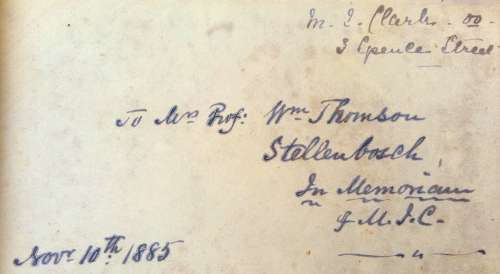 M. J. Clark.
3 Spence Street
To Mrs Prof: Wm Thomson
Stellenbosch,
In Memoriam
of M. J. C.
Novr 10th 1885